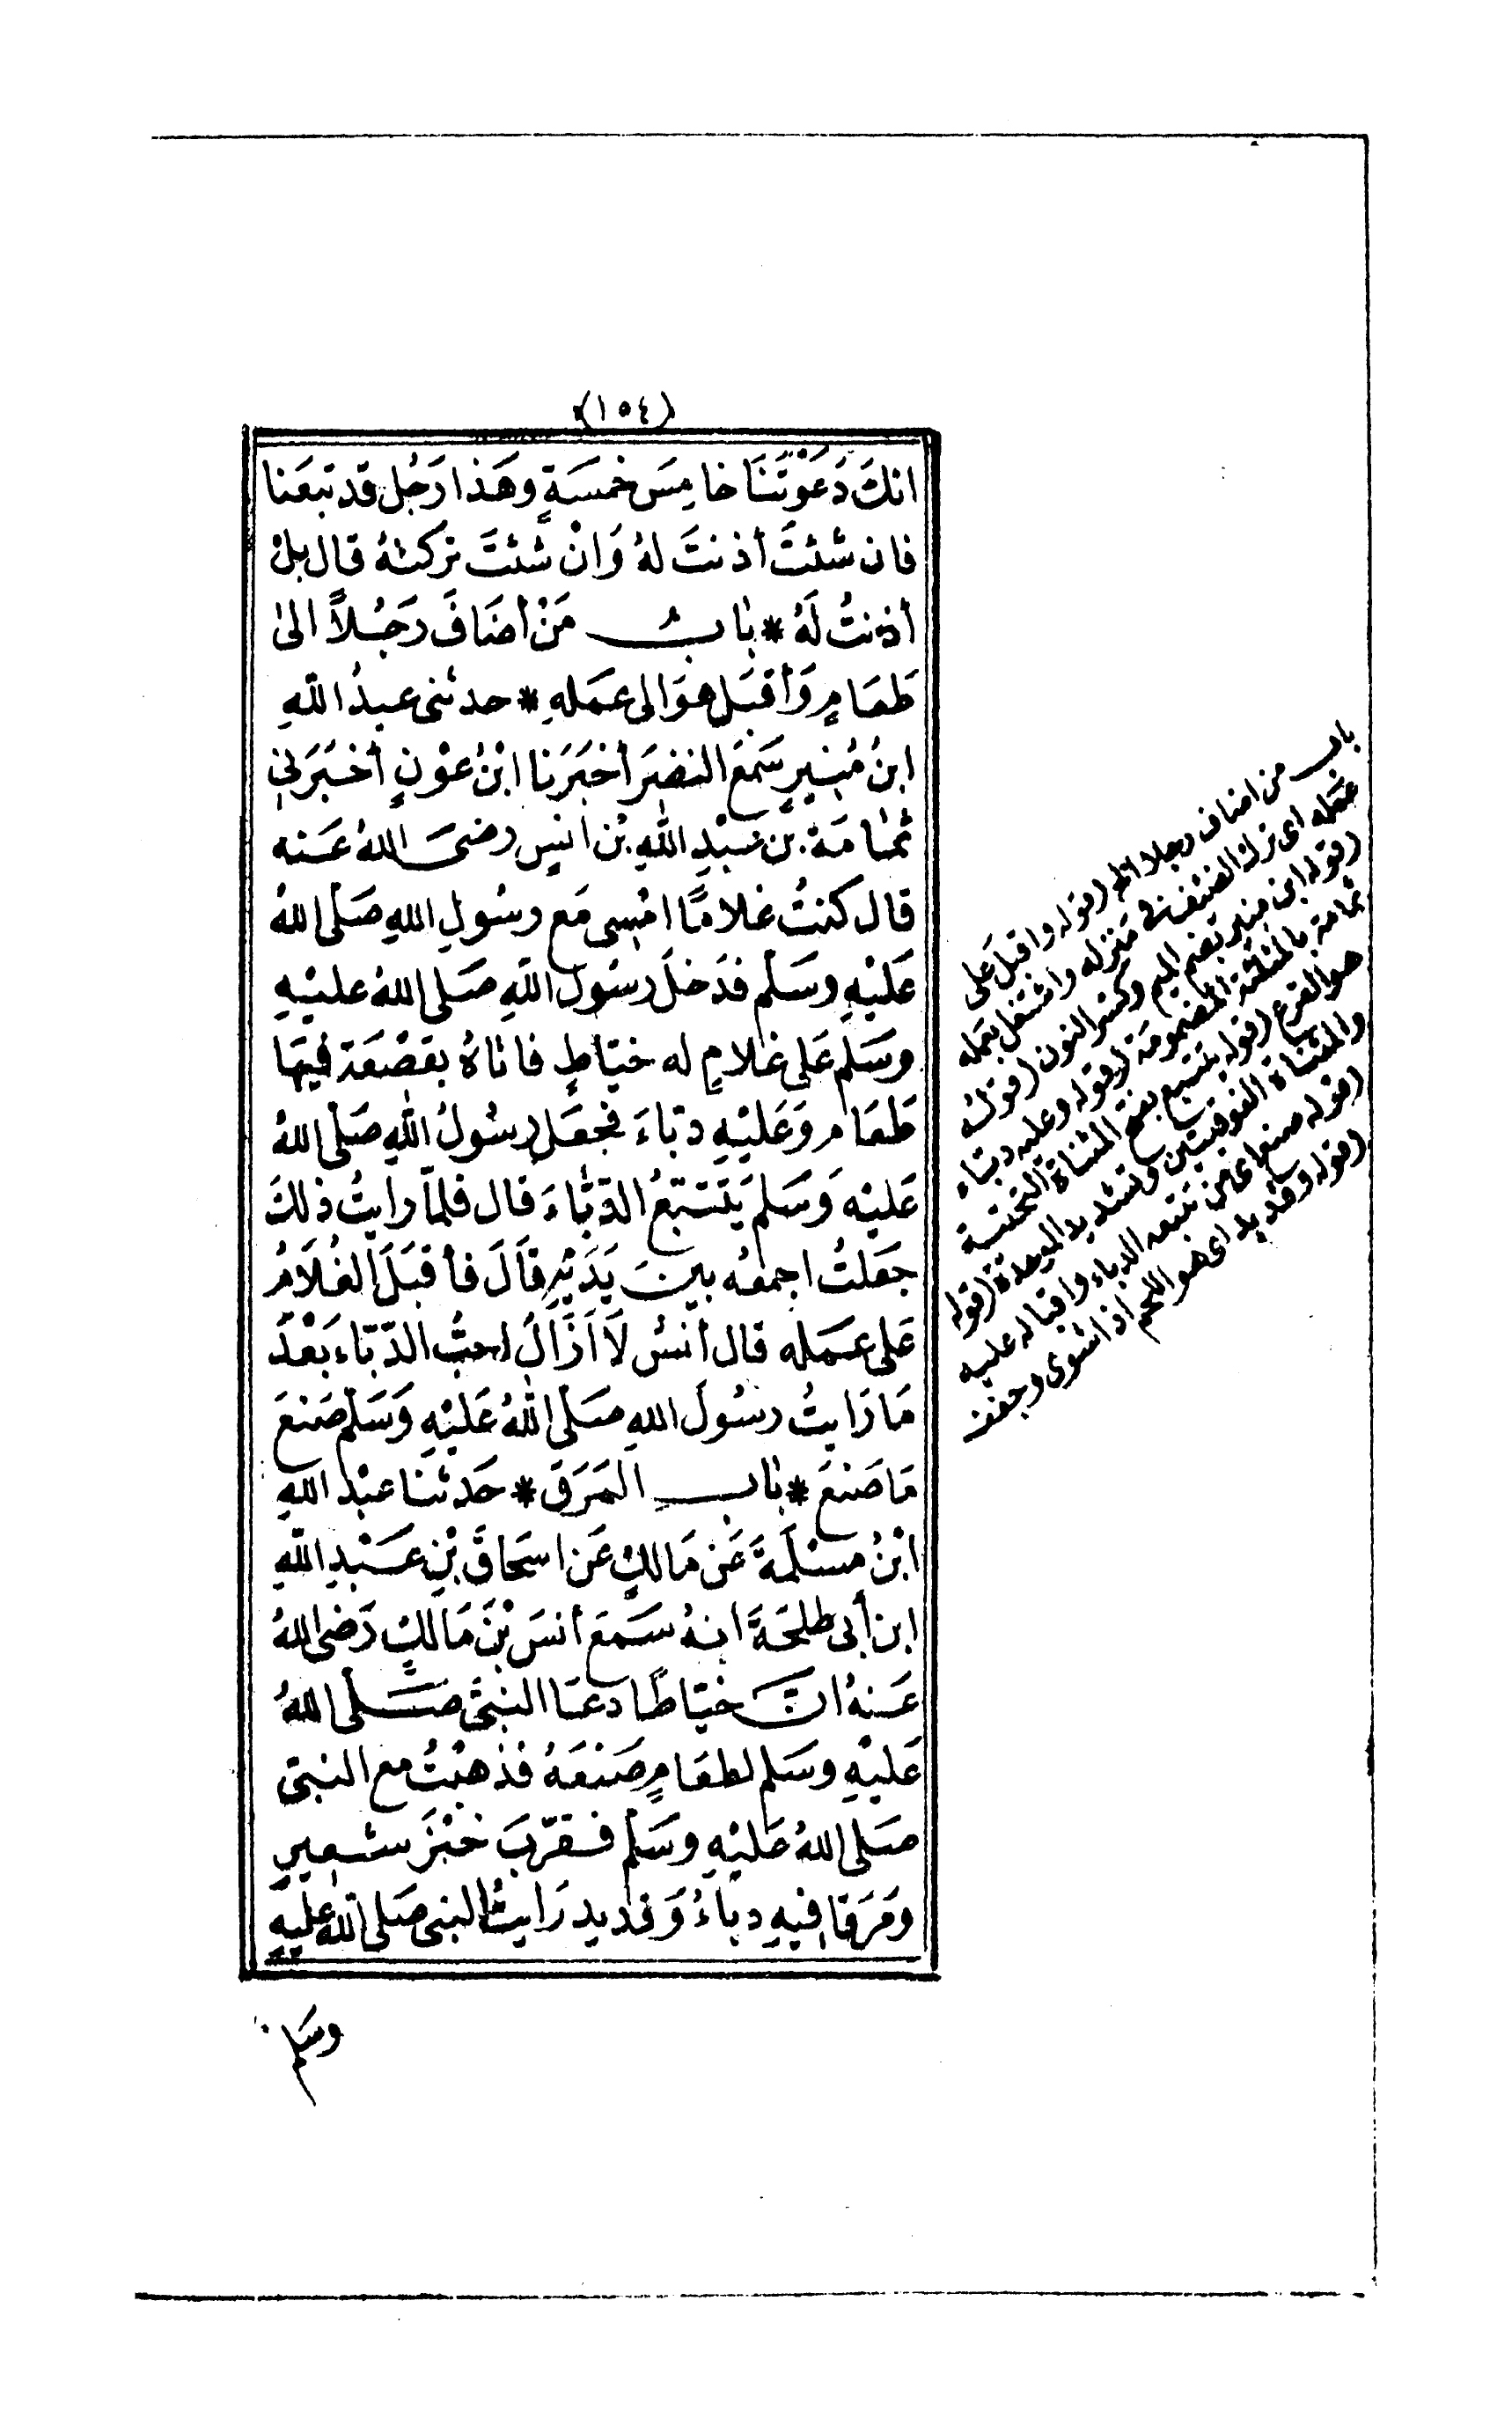 (١٥٤)
انكَ دَعَوْتَنَا خامِسَ خمسَةٍ وهَذا رَجُل قد تبعَنا
فان شئتَ أذنتَ لهُ وَانْ شئتَ تركتهُ قال بلْ
أذنتُ لَهُ * بابُ مَنْ أضَافَ رَجُلاً الى
طَعَامٍ وَأقبَل هوَ الى عمَلهِ * حدثنى عبدُ اللهِ
ابنُ مُنِيرٍ سَمعَ النضرَ أخبَرَنا ابْنُ عوْنٍ أخبَرَنِى
ثمَامَة بن عبْدِ اللهِ بْن أنسٍ رضىَ اللهُ عَنه
قال كنتُ غلامًا امْشى مَع رسُولِ اللهِ صَلى اللهُ
عَلَيْهِ وسَلم فدَخلَ رسُول اللهِ صَلى اللهُ عليْهِ
وسَلم عَلى غلامٍ له خيّاطٍ فاتاهُ بقصْعَة فيهَا
طَعَام وَعَليْهِ دبّاءَ فجعَل رسُولُ اللهِ صَلى اللهُ
عَليْهِ وَسَلم يَتَتبّعُ الدّبّاءَ قال فلمّا رايتُ ذلكَ
جَعَلتُ اجمعُه بينَ يَدَيْهِ قَالَ فأقبَلَ الغُلَامُ
عَلى عمَله قال أنسُ لَا أزَالُ احبُّ الدّبّاء بَعْدَ
مَا رَايتُ رسُولَ اللهِ صَلى اللهُ عَليْهِ وَسَلم صَنعَ
مَا صَنعَ * بابِ المَرَقِ * حَدثنا عبْد اللهِ
ابْنُ مسْلَمةَ عَن مَالكٍ عَن اسحَاقَ بْنِ عَبْدِ اللهِ
ابن أبى طلحَةَ انهُ سَمعَ أنسَ بْنَ مَالكٍ رَضى اللهُ
عَنهُ انَّ خيّاطًا دعَا النبىَّ صَلى اللهُ
عَليْهِ وسَلم لطعَامٍ صَنعَهُ فذهبْتُ مع النبىّ
صَلى اللهُ عَليْهِ وسَلم فقرّبَ خبْزَ شعِيرٍ
ومَرَقا فيهِ دباءُ وَقديد رَايتُ النبى صَلى اللهُ عليهِ
وسَلم
باب من اضاف رجلا الخ (قوله واقبل على
عمله اى ترك الضيف فى منزله واشتغل بعمله
(قوله ابن منير بضم الميم وكسر النون (قوله
ثمامة بالمثلثة المضمومة (قوله وعليه دباء
هو القرع (قوله يتتبع بفتح المثناة التحتية
والمثناة الفوقيتين وتشديد الموحدة (قوله
(قوله صنع اى من تتبعه الدباء واقباله عليه
(قوله وقديد اى هو اللحم اذا شوى وجفف